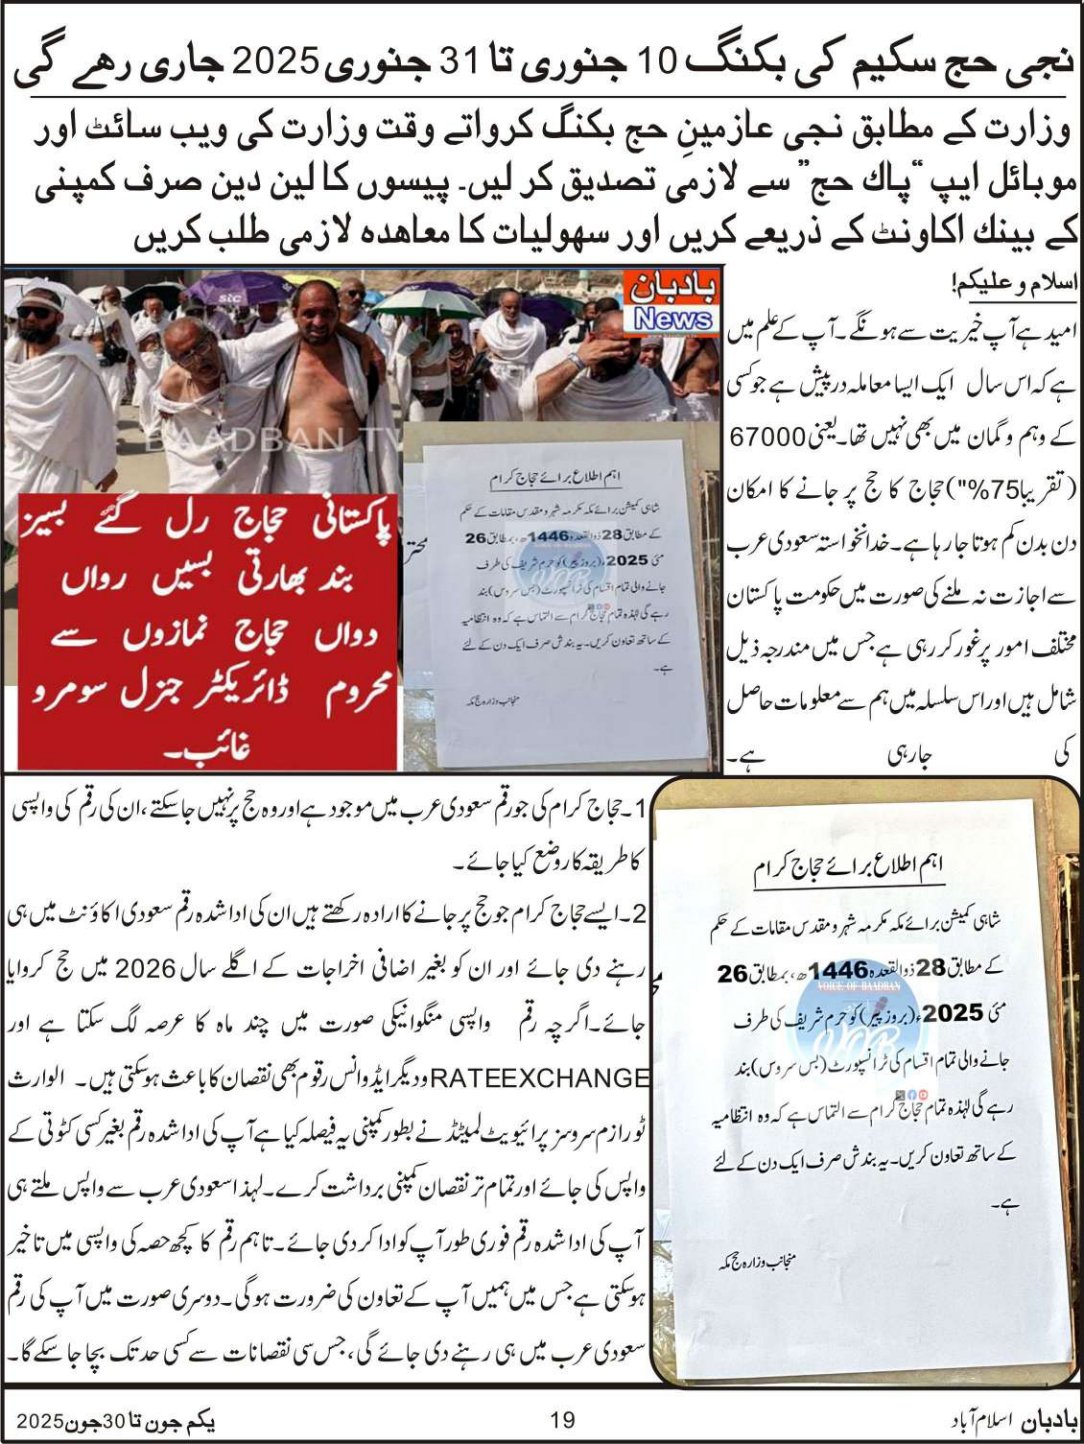 نجی حج سکیم کی بکنگ 10 جنوری تا 31 جنوری 2025 جاری رھے گی
وزارت کے مطابق نجی عازمینِ حج بکنگ کرواتے وقت وزارت کی ویب سائٹ اور
موبائل ایپ “پاك حج” سے لازمی تصدیق کر لیں۔ پیسوں کا لین دین صرف کمپنی
کے بینك اکاونٹ کے ذریعے کریں اور سھولیات کا معاھدہ لازمی طلب کریں
اسلام و علیکم!
امید ہے آپ خیریت سے ہونگے۔ آپ کے علم میں
ہے کہ اس سال ایک ایسا معاملہ درپیش ہے جو کسی
کے وہم و گمان میں بھی نہیں تھا۔ یعنی 67000
(تقریبا75%") حجاج کا حج پر جانے کا امکان
دن بدن کم ہوتا جا رہا ہے۔ خدانخواستہ سعودی عرب
سے اجازت نہ ملنے کی صورت میں حکومت پاکستان
مختلف امور پر غور کر رہی ہے جس میں مندرجہ ذیل
شامل ہیں اور اس سلسلہ میں ہم سے معلومات حاصل
کی جارہی ہے۔
بادبان
News
BAADBAN TV
پاکستانی حجاج رل گئے بسیز
بند بھارتی بسیں رواں
دواں حجاج نمازوں سے
محروم ڈائریکٹر جنرل سومرو
غائب۔
اہم اطلاع برائے حجاج کرام
شاہی کمیشن برائے مکہ مکرمہ شہر و مقدس مقامات کے حکم
کے مطابق 28 ذوالقعدہ 1446ھ، بمطابق 26
مئی 2025ء (بروز پیر) کو حرم شریف کی طرف
جانے والی تمام اقسام کی ٹرانسپورٹ (بس سروس) بند
رہے گی لہٰذہ تمام حجاج کرام سے التماس ہے کہ وہ انتظامیہ
کے ساتھ تعاون کریں۔ یہ بندش صرف ایک دن کے لئے
ہے۔
منجانب وزارہ حج مکہ
1۔ حجاج کرام کی جو رقم سعودی عرب میں موجود ہے اور وہ حج پر نہیں جا سکتے، ان کی رقم کی واپسی
کا طریقہ کار وضع کیا جائے۔
2۔ ایسے حجاج کرام جو حج پر جانے کا ارادہ رکھتے ہیں ان کی ادا شدہ رقم سعودی اکاؤنٹ میں ہی
رہنے دی جائے اور ان کو بغیر اضافی اخراجات کے اگلے سال 2026 میں حج کروایا
جائے۔ اگرچہ رقم واپسی منگوانیکی صورت میں چند ماہ کا عرصہ لگ سکتا ہے اور
RATEEXCHANGE و دیگر ایڈوانس رقوم بھی نقصان کا باعث ہو سکتی ہیں۔ الوارث
ٹورازم سروسز پرائیویٹ لمیٹڈ نے بطور کمپنی یہ فیصلہ کیا ہے آپ کی ادا شدہ رقم بغیر کسی کٹوتی کے
واپس کی جائے اور تمام تر نقصان کمپنی برداشت کرے۔ لہذا سعودی عرب سے واپس ملتے ہی
آپ کی ادا شدہ رقم فوری طور آپ کو ادا کر دی جائے۔ تاہم رقم کا کچھ حصہ کی واپسی میں تاخیر
ہو سکتی ہے جس میں ہمیں آپ کے تعاون کی ضرورت ہو گی۔ دوسری صورت میں آپ کی رقم
سعودی عرب میں ہی رہنے دی جائے گی، جس سی نقصانات سے کسی حد تک بچا جا سکے گا۔
اہم اطلاع برائے حجاج کرام
شاہی کمیشن برائے مکہ مکرمہ شہر و مقدس مقامات کے حکم
کے مطابق 28 ذوالقعدہ 1446ھ، بمطابق 26
VOICE OF BAADBAN
مئی 2025ء (بروز پیر) کو حرم شریف کی طرف
جانے والی تمام اقسام کی ٹرانسپورٹ (بس سروس) بند
رہے گی لہٰذہ تمام حجاج کرام سے التماس ہے کہ وہ انتظامیہ
کے ساتھ تعاون کریں۔ یہ بندش صرف ایک دن کے لئے
ہے۔
منجانب وزارہ حج مکہ
بادبان اسلام آباد
19
یکم جون تا 30جون2025